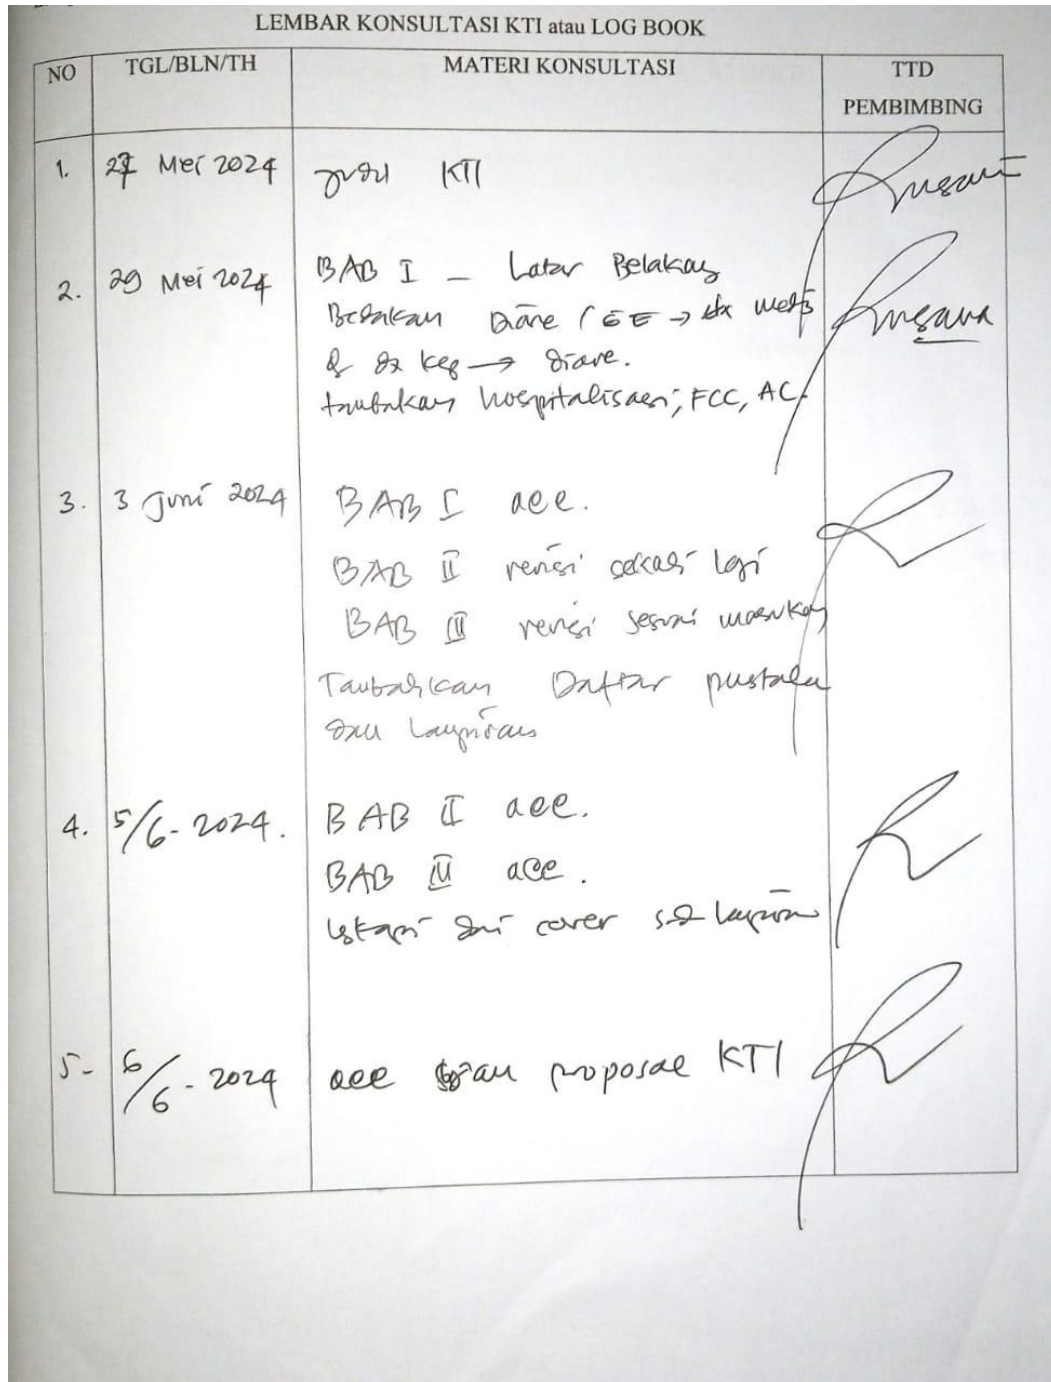 LEMBAR KONSULTASI KTI atau LOG BOOK
NO TGL/BLN/TH MATERI KONSULTASI TTD PEMBIMBING
1. 27 Mei 2024 Judul KTI
2. 29 Mei 2024 BAB I - Latar Belakang
Bedakan Diare / GE → dx medis
& dx kep → diare.
tambahkan hospitalisasi, FCC, AC.
3. 3 Juni 2024 BAB I acc.
BAB II revisi sekali lagi
BAB III revisi sesuai masukan
Tambahkan Daftar pustaka
dan Lampiran
4. 5/6-2024. BAB II acc.
BAB III acc.
lengkapi dari cover sd lampiran
5- 6/6-2024 acc proposal KTI